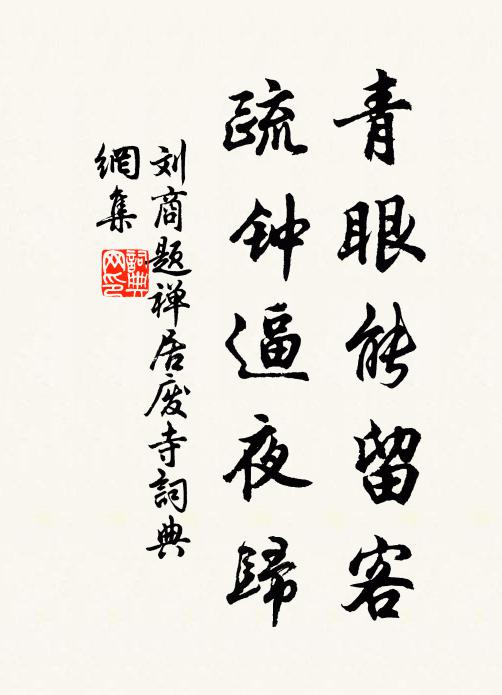 青眼能留客
疏钟逼夜歸
刘商题禅居废寺詞典
網集
詞典
网印